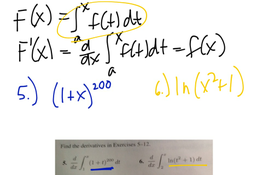 F(x) = ∫ₐˣ f(t) dt
F'(x) = d/dx ∫ₐˣ f(t) dt = f(x)
5.) (1+x)²⁰⁰ 6.) ln(x²+1)
Find the derivatives in Exercises 5–12.
5. d/dx ∫ (1 + t)²⁰⁰ dt 6. d/dx ∫ ln(t² + 1) dt